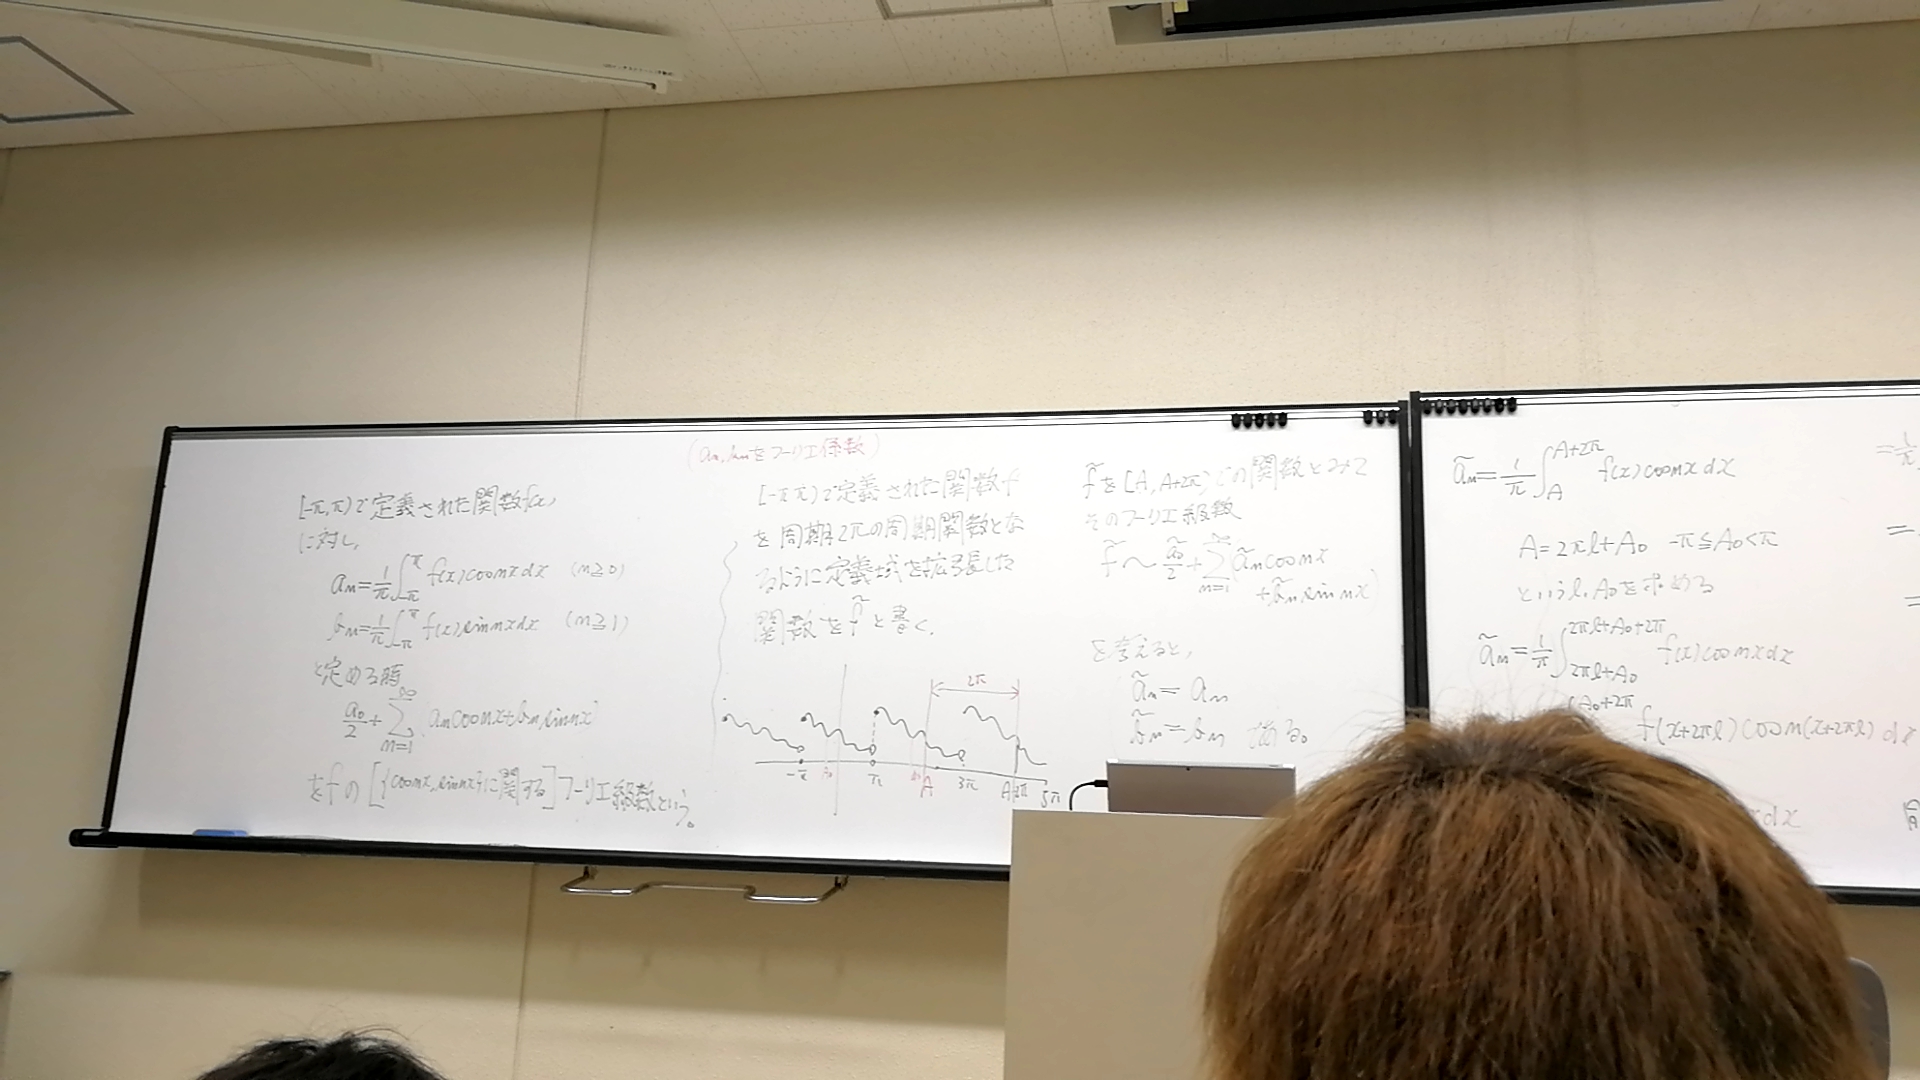 (an, bnをフーリエ係数)
[-π,π)で定義された関数f(x)
に対し、
an=1/π∫_{-π}^{π} f(x)cosnxdx (n≧0)
bn=1/π∫_{-π}^{π} f(x)sinnxdx (n≧1)
と定める時
a0/2+Σ_{n=1}^{∞}(an cosnx+bn sinnx)
をfの[{cosnx,sinnx}に関する]フーリエ級数という。
[-π,π)で定義された関数f
を周期2πの周期関数とな
るように定義域を拡張した
関数をf̃と書く。
2π
-π A0 π A 3π A+2π 5π
f̃を[A,A+2π)での関数とみて
そのフーリエ級数
f̃〜ã0/2+Σ_{n=1}^{∞}(ãn cosnx
+b̃n sinnx)
を考えると、
ãn=an
b̃n=bn である。
ãn=1/π∫_{A}^{A+2π} f(x)cosnxdx
A=2πl+A0 -π≦A0<π
というl,A0を求める
ãn=1/π∫_{2πl+A0}^{2πl+A0+2π} f(x)cosnxdx
A0+2π
f(x+2πl)cosn(x+2πl)dx
xdx
=1/π
=
=